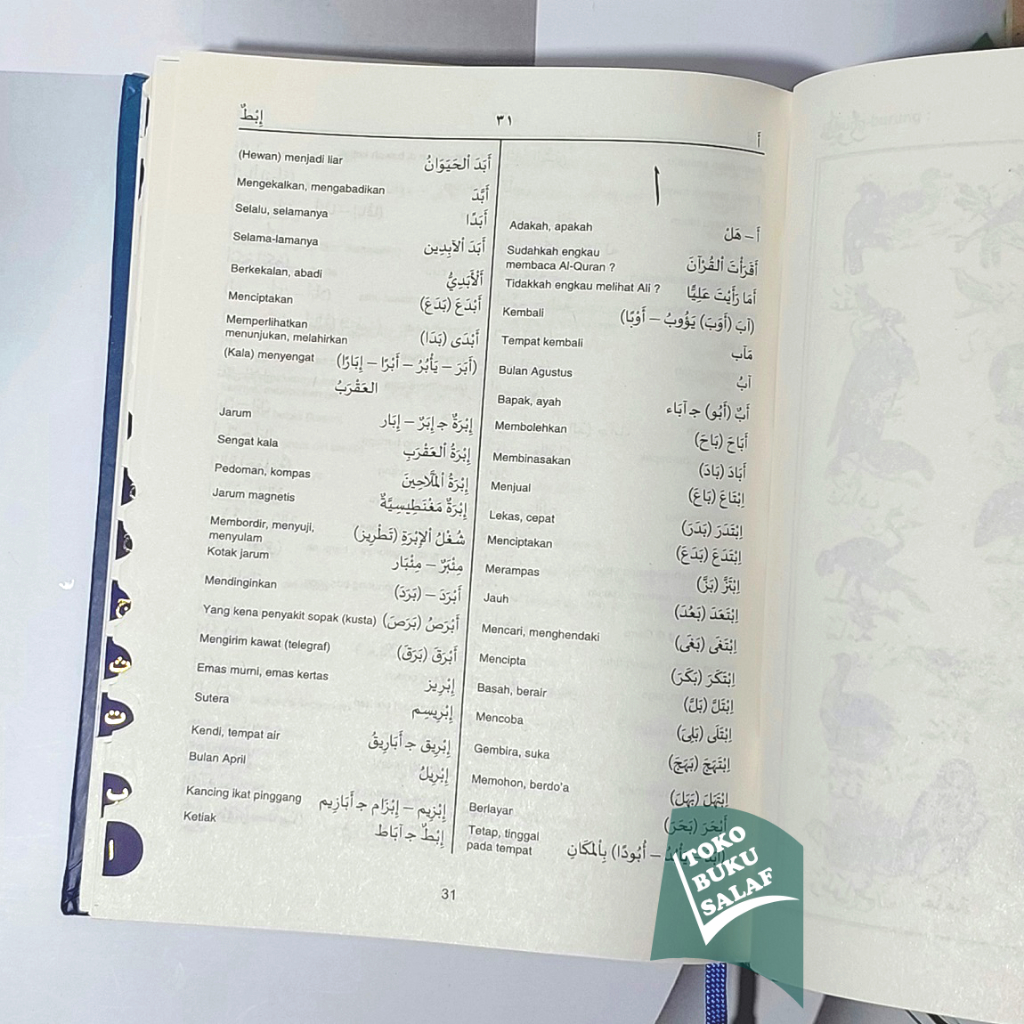 إِبْطٌ
٣١
أَ
ا
أَ – هَلْ Adakah, apakah
أَقَرَأْتَ الْقُرْآنَ Sudahkah engkau
membaca Al-Quran ?
أَمَا رَأَيْتَ عَلِيًّا Tidakkah engkau melihat Ali ?
(آبَ (أَوَبَ) يَؤُوبُ – أَوْبًا) Kembali
مَآب Tempat kembali
آبُ Bulan Agustus
أَبٌ (أَبُو) جـ آبَاء Bapak, ayah
أَبَاحَ (بَاحَ) Membolehkan
أَبَادَ (بَادَ) Membinasakan
اِبْتَاعَ (بَاعَ) Menjual
اِبْتَدَرَ (بَدَرَ) Lekas, cepat
اِبْتَدَعَ (بَدَعَ) Menciptakan
اِبْتَزَّ (بَزَّ) Merampas
اِبْتَعَدَ (بَعُدَ) Jauh
اِبْتَغَى (بَغَى) Mencari, menghendaki
اِبْتَكَرَ (بَكَرَ) Mencipta
اِبْتَلَّ (بَلَّ) Basah, berair
اِبْتَلَى (بَلِيَ) Mencoba
اِبْتَهَجَ (بَهَجَ) Gembira, suka
اِبْتَهَلَ (بَهَلَ) Memohon, berdo'a
أَبْحَرَ (بَحَرَ) Berlayar
– أُبُودًا) بِالْمَكَانِ Tetap, tinggal
pada tempat
أَبَدَ الْحَيَوَانُ (Hewan) menjadi liar
أَبَّدَ Mengekalkan, mengabadikan
أَبَدًا Selalu, selamanya
أَبَدَ الْآبِدِين Selama-lamanya
أَلْأَبَدِيُّ Berkekalan, abadi
أَبْدَعَ (بَدَعَ) Menciptakan
أَبْدَى (بَدَا) Memperlihatkan
menunjukan, melahirkan
(أَبَرَ – يَأْبُرُ – أَبْرًا – إِبَارًا) (Kala) menyengat
العَقْرَبُ
إِبْرَةٌ جـ إِبَرٌ – إِبَار Jarum
إِبْرَةُ الْعَقْرَبِ Sengat kala
إِبْرَةُ الْمَلَّاحِينَ Pedoman, kompas
إِبْرَةٌ مَغْنَطِيسِيَّةٌ Jarum magnetis
شُغْلُ الْإِبْرَةِ (تَطْرِيز) Membordir, menyuji,
menyulam
مِئْبَرٌ – مِئْبَار Kotak jarum
أَبْرَدَ – (بَرَدَ) Mendinginkan
أَبْرَصُ (بَرَصَ) Yang kena penyakit sopak (kusta)
أَبْرَقَ (بَرَقَ) Mengirim kawat (telegraf)
إِبْرِيز Emas murni, emas kertas
إِبْرِيسِم Sutera
إِبْرِيق جـ أَبَارِيقُ Kendi, tempat air
إِبْرِيلُ Bulan April
إِبْزِيم – إِبْزَام جـ أَبَازِيم Kancing ikat pinggang
إِبْطٌ جـ آبَاط Ketiak
31
ث
ت
ب
ا
TOKO
BUKU
SALAF